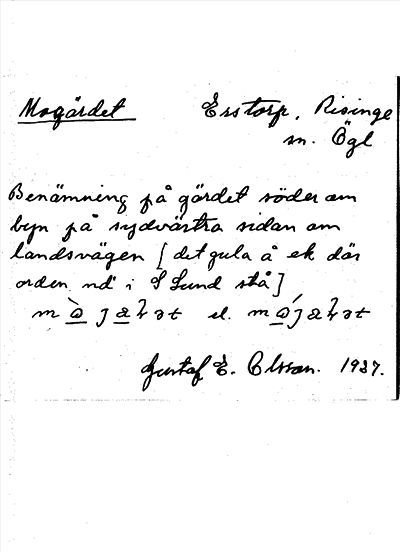 Mogärdet Ersstorp, Risinge
sn. Ögl
Benämning på gärdet söder om
byn på sydvästra sidan om
landsvägen [det gula å ek där
orden nd' i S Lund stå]
el.
Gustaf E. Olsson. 1937.